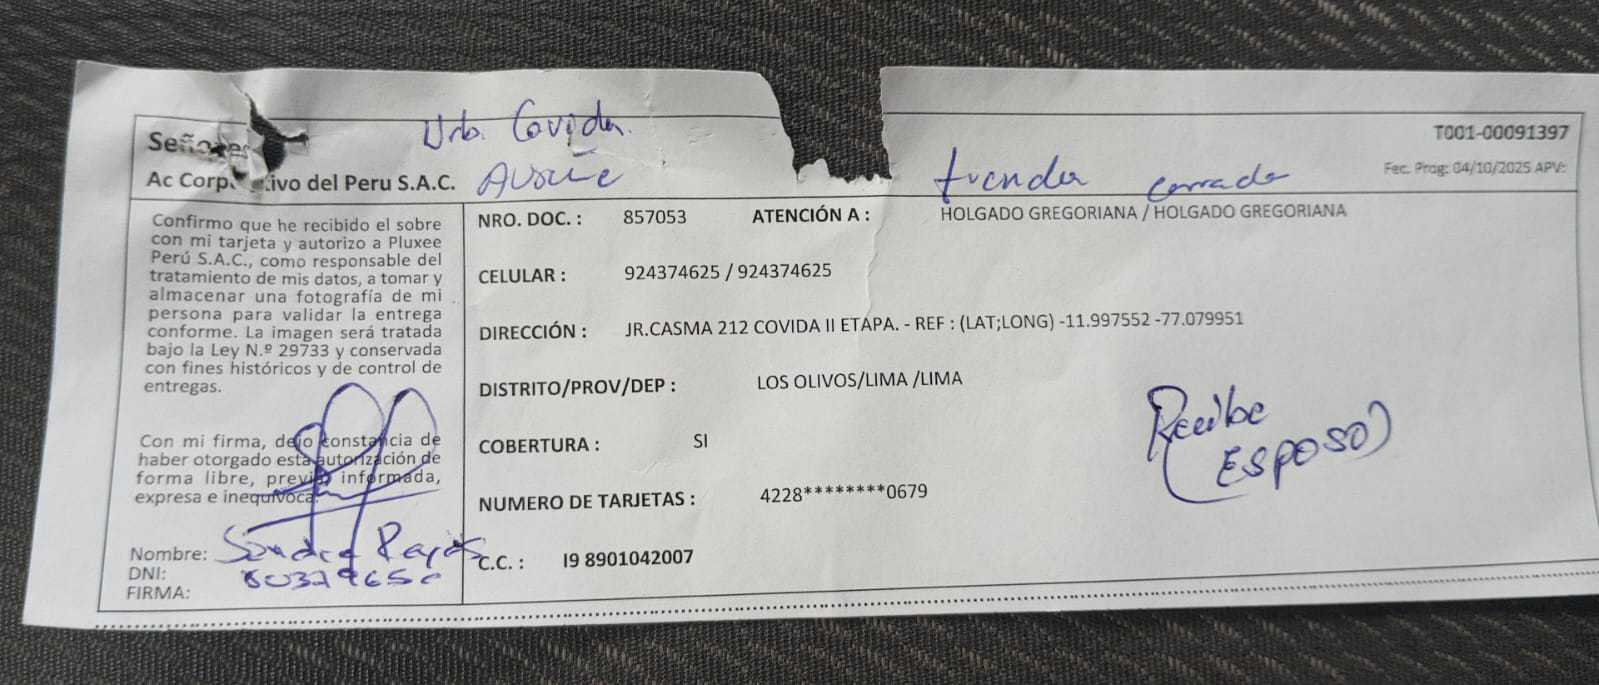 Urb. Covida.
T001-00091397
Señores
Ac Corp tivo del Peru S.A.C.
tienda cerrada
Fec. Prog: 04/10/2025 APV:
Confirmo que he recibido el sobre
con mi tarjeta y autorizo a Pluxee
Perú S.A.C., como responsable del
tratamiento de mis datos, a tomar y
almacenar una fotografía de mi
persona para validar la entrega
conforme. La imagen será tratada
bajo la Ley N.º 29733 y conservada
con fines históricos y de control de
entregas.
Con mi firma, dejo constancia de
haber otorgado esta autorización de
forma libre, previa, informada,
expresa e inequívoca.
Nombre:
DNI:
FIRMA:
NRO. DOC. : 857053 ATENCIÓN A : HOLGADO GREGORIANA / HOLGADO GREGORIANA
CELULAR : 924374625 / 924374625
DIRECCIÓN : JR.CASMA 212 COVIDA II ETAPA. - REF : (LAT;LONG) -11.997552 -77.079951
DISTRITO/PROV/DEP : LOS OLIVOS/LIMA /LIMA
COBERTURA : SI
NUMERO DE TARJETAS : 4228********0679
C.C. : I9 8901042007
Recibe
ESPOSO